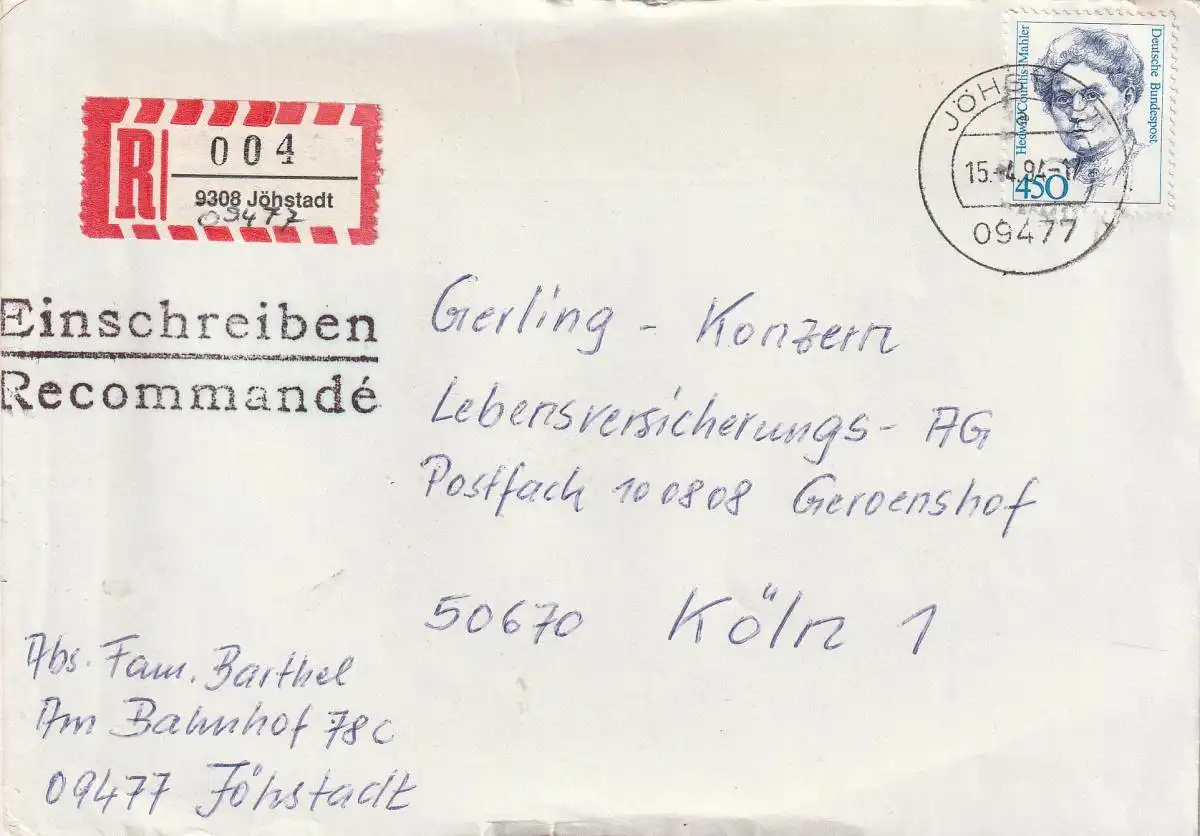 Hedwig Courths-Mahler
Deutsche Bundespost
450
JÖHSTADT
15.-4.94-17
09477
R
004
9308 Jöhstadt
09477
Einschreiben
Recommandé
Gerling - Konzern
Lebensversicherungs- AG
Postfach 100808 Geroenshof
50670 Köln 1
Abs. Fam. Barthel
Am Bahnhof 78c
09477 Jöhstadt